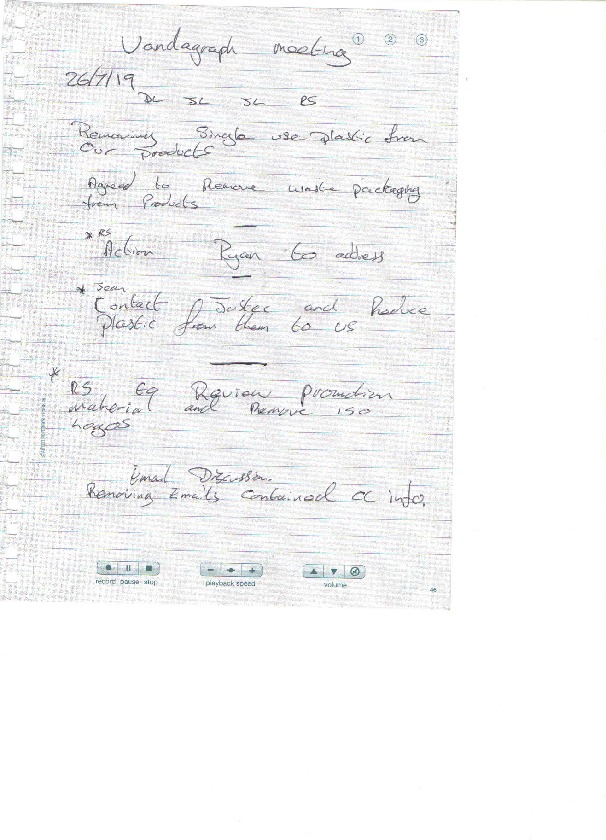 Vandagraph meeting
1 2 3
26/7/19
DL SL SL RS
Removing Single use plastic from
Our Products
Agreed to Remove waste packaging
from Products
* RS
Action Ryan to address
* Sean
Contact Justec and Reduce
plastic from them to us
*
RS Eq Review promotion
material and Remove iso
Logos
Email Discussion.
Removing Emails contained CC info.
record pause stop playback speed volume
46